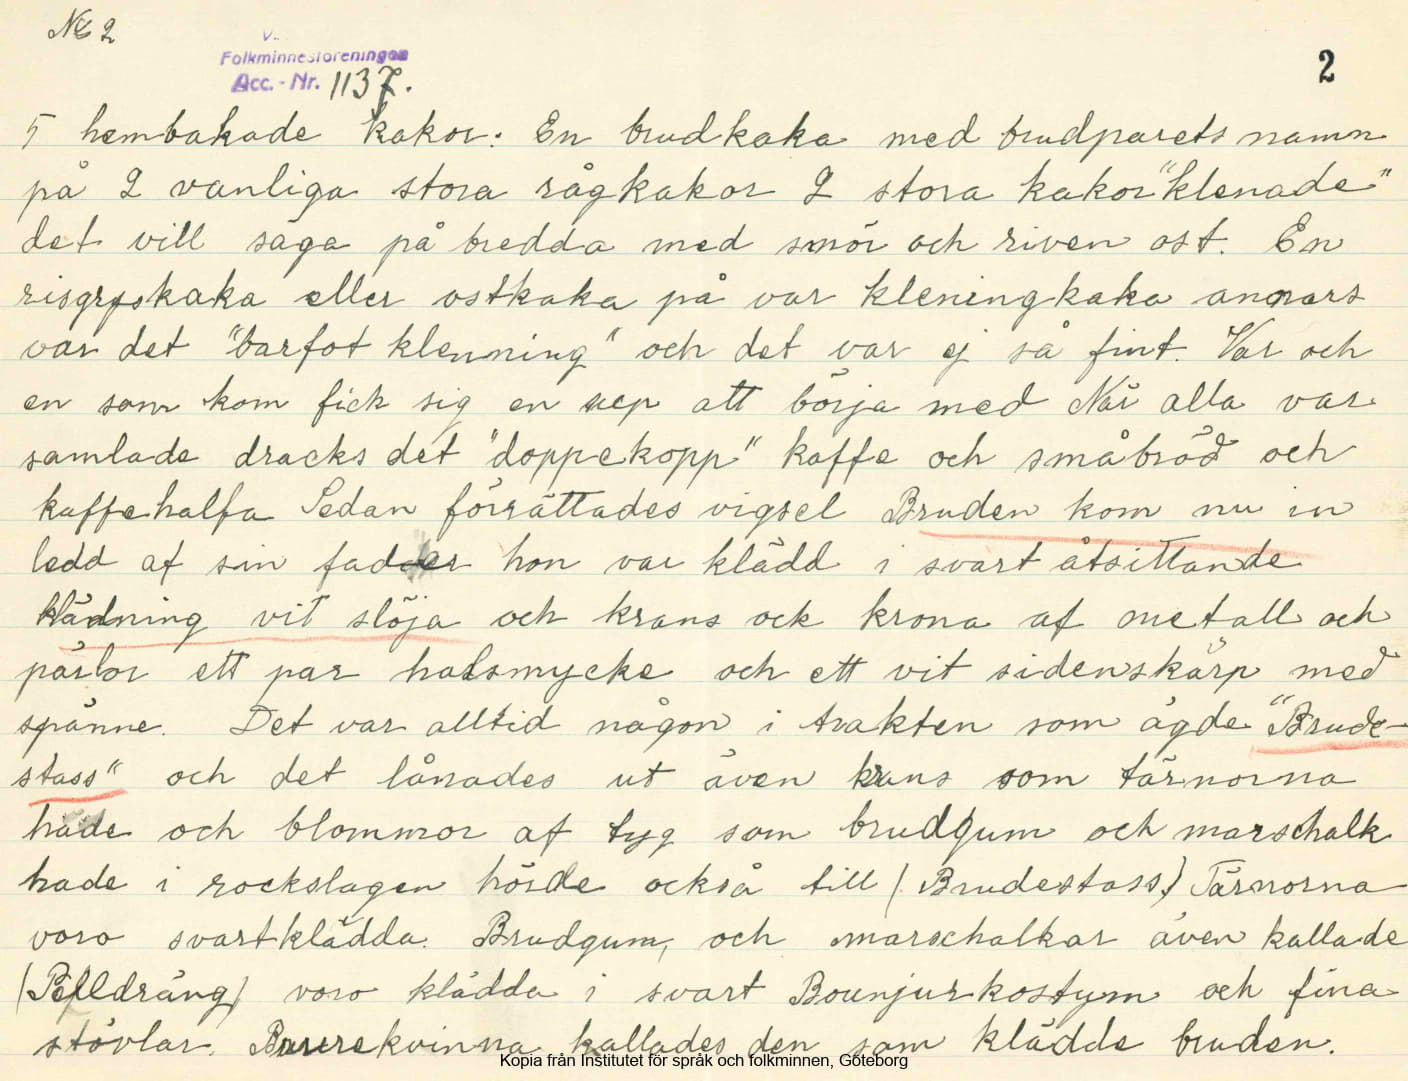 № 2
Folkminnesföreningen
2
Acc.-Nr. 1137.
5 hembakade kakor. En brudkaka med brudparets namn
på 2 vanliga stora rågkakor 2 stora kakor "klenade"
det vill säga på bredda med smör och riven ost. En
risgryskaka eller ostkaka på var kleningkaka annars
var det "barfot klenning" och det var ej så fint. Var och
en som kom fick sig en sup att börja med När alla var
samlade dracks det "doppekopp" kaffe och småbröd och
kaffehalfa Sedan förrättades vigsel Bruden kom nu in
ledd af sin fadder hon var klädd i svart åtsittande
klädning vit slöja och krans ock krona af metall och
pärlor ett par halsmycke och ett vit sidenskärp med
spänne. Det var alltid någon i trakten som ägde "Brude-
stass" och det lånades ut även krans som tärnorna
hade och blommor af tyg som brudgum och marschalk
hade i rockslagen hörde också till (Brudestass) Tärnorna
voro svartklädda. Brudgum, och marschalkar även kallade
(Pelldräng) voro klädda i svart Bounjurkostym och fina
stövlar. kvinna kallades den som klädde bruden.
Kopia från Institutet för språk och folkminnen, Göteborg